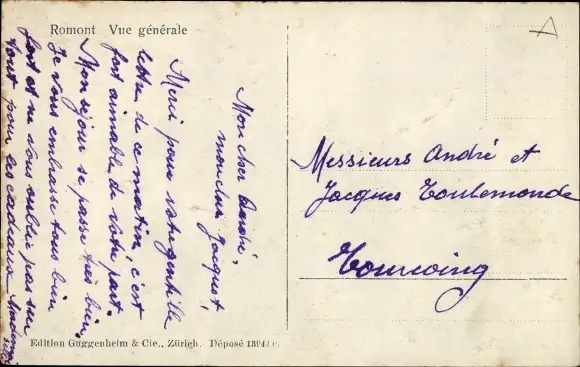 Romont Vue générale
Mon cher André,
mon cher Jacquot
Merci pour votre gentille
lettre de ce matin, c'est
fort aimable de votre part.
Mon séjour se passe très bien,
Je vous embrasse tous bien
fort et ne vous oublie pas
tout pour les cadeaux
Messieurs André et
Jacques Toulemonde
Tourcoing
Edition Guggenheim & Cie., Zürigh. Déposé